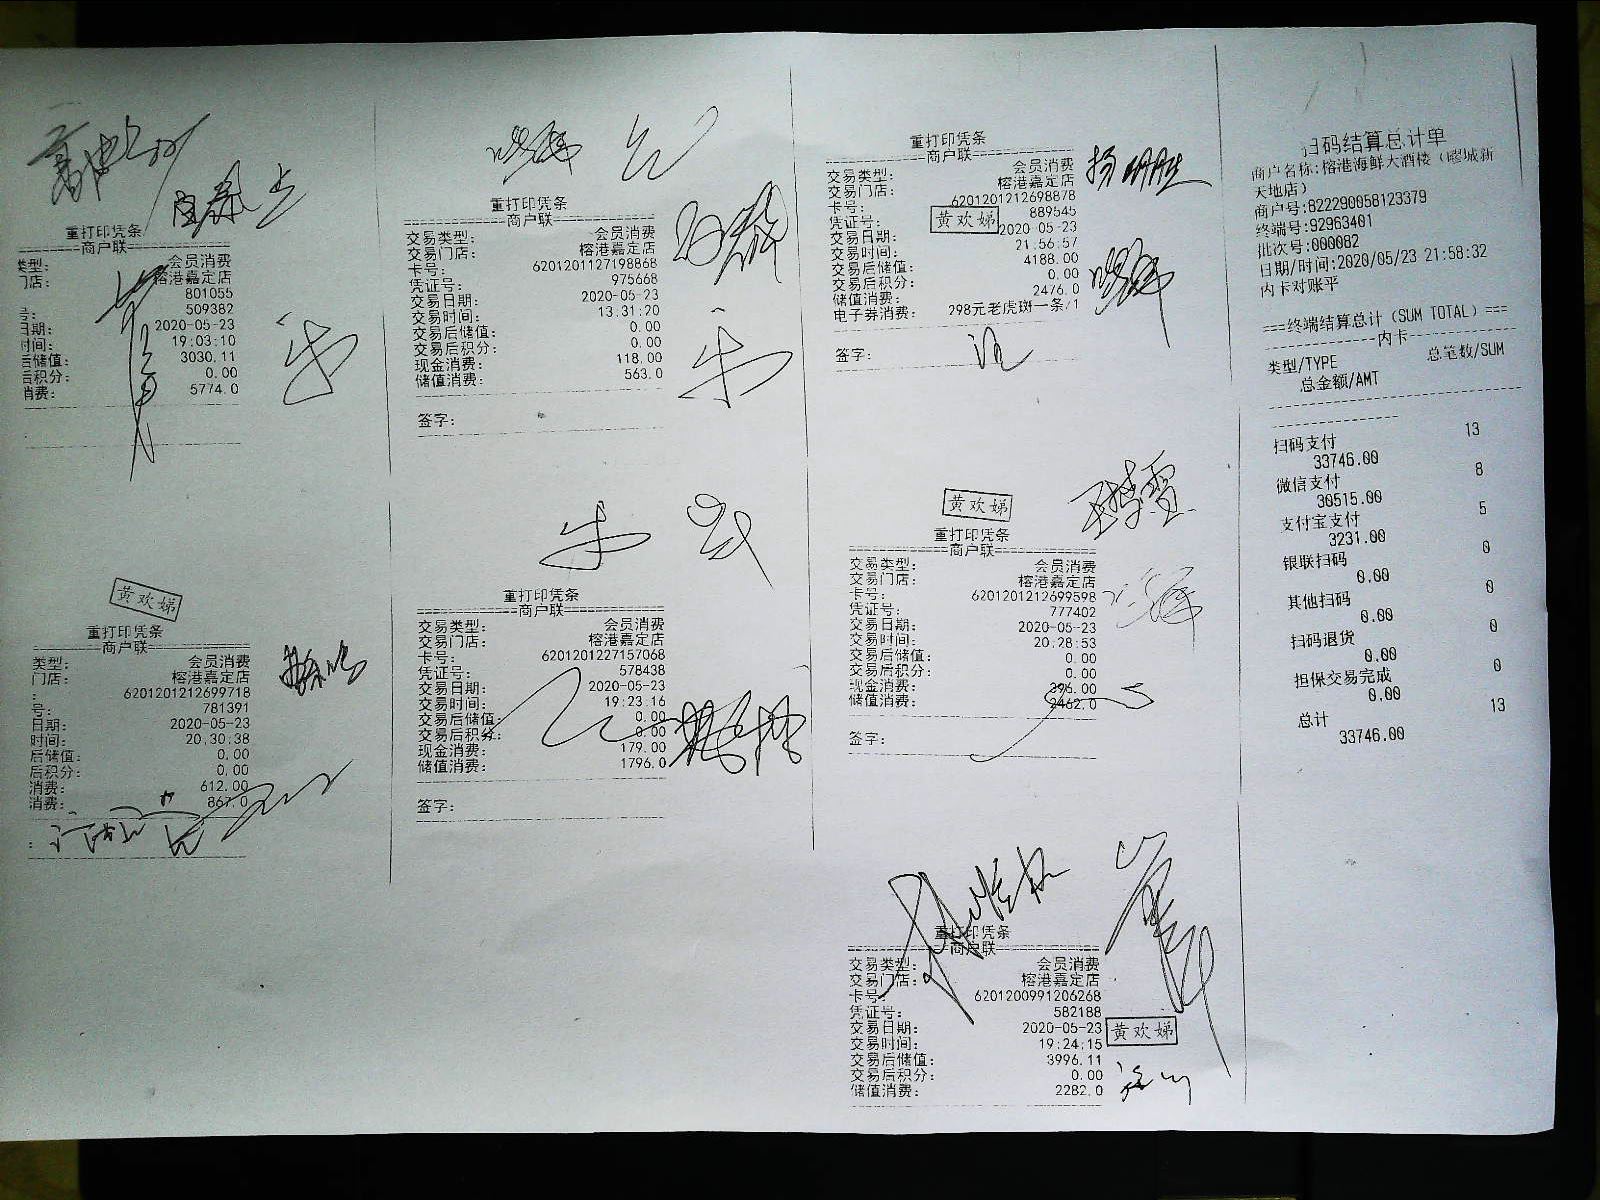 重打印凭条
商户联
类型: 会员消费
门店: 榕港嘉定店
801055
号: 509382
日期: 2020-05-23
时间: 19:03:10
后储值: 3030.11
后积分: 0.00
消费: 5774.0
黄欢娣
重打印凭条
商户联
类型: 会员消费
门店: 榕港嘉定店
: 6201201212699718
号: 781391
日期: 2020-05-23
时间: 20:30:38
后储值: 0.00
后积分: 0.00
消费: 612.00
消费: 867.0
重打印凭条
商户联
交易类型: 会员消费
交易门店: 榕港嘉定店
卡号: 6201201127198868
凭证号: 975668
交易日期: 2020-05-23
交易时间: 13:31:20
交易后储值: 0.00
交易后积分: 0.00
现金消费: 118.00
储值消费: 563.0
签字:
重打印凭条
商户联
交易类型: 会员消费
交易门店: 榕港嘉定店
卡号: 6201201227157068
凭证号: 578438
交易日期: 2020-05-23
交易时间: 19:23:16
交易后储值: 0.00
交易后积分: 0.00
现金消费: 179.00
储值消费: 1796.0
签字:
重打印凭条
商户联
交易类型: 会员消费
交易门店: 榕港嘉定店
卡号: 6201201212698878
凭证号: 889545
黄欢娣
交易日期: 2020-05-23
交易时间: 21:56:57
交易后储值: 4188.00
交易后积分: 0.00
储值消费: 2476.0
电子券消费: 298元老虎斑一条/1
签字:
黄欢娣
重打印凭条
商户联
交易类型: 会员消费
交易门店: 榕港嘉定店
卡号: 6201201212699598
凭证号: 777402
交易日期: 2020-05-23
交易时间: 20:28:53
交易后储值: 0.00
交易后积分: 0.00
现金消费: 396.00
储值消费: 2462.0
签字:
重打印凭条
商户联
交易类型: 会员消费
交易门店: 榕港嘉定店
卡号: 6201200991206268
凭证号: 582188
交易日期: 2020-05-23
黄欢娣
交易时间: 19:24:15
交易后储值: 3996.11
交易后积分: 0.00
储值消费: 2282.0
扫码结算总计单
商户名称:榕港海鲜大酒楼（疁城新
天地店）
商户号:822290058123379
终端号:92963401
批次号:000082
日期/时间:2020/05/23 21:58:32
内卡对账平
===终端结算总计（SUM TOTAL）===
内卡
类型/TYPE 总笔数/SUM
总金额/AMT
扫码支付 13
33746.00
微信支付 8
30515.00
支付宝支付 5
3231.00
银联扫码 0
0.00
其他扫码 0
0.00
扫码退货 0
0.00
担保交易完成 0
0.00
总计 13
33746.00